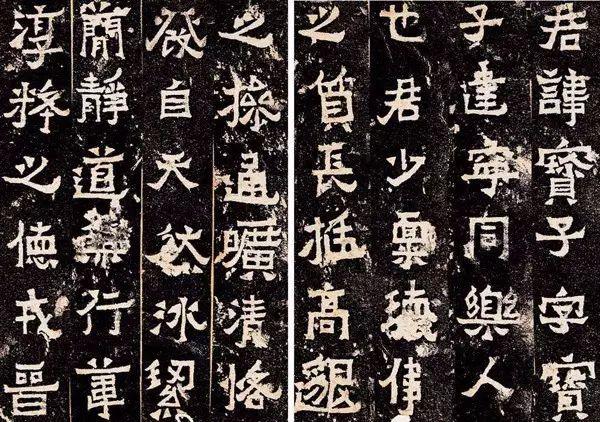 君諱寶子字寶
子建寧同樂人
也君少稟瓌偉
之質長挺高邈
之操通曠清恪
發自天然冰絜
簡靜道兼行葦
淳粹之德戎晉